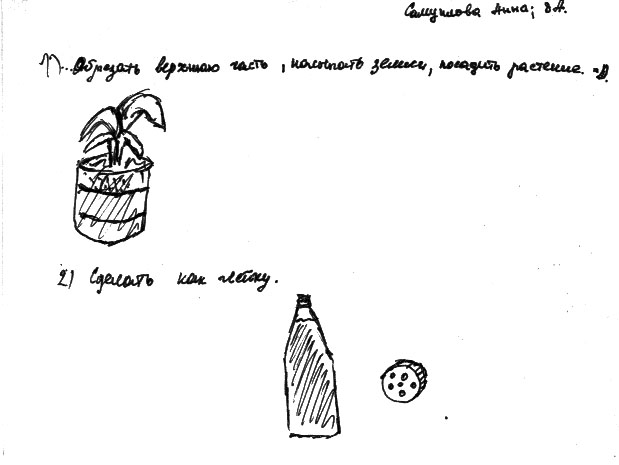 Самуилова Анна; 8А.
1)...Обрезать верхнюю часть, насыпать земли, посадить растение. =D
2) Сделать как лейку.